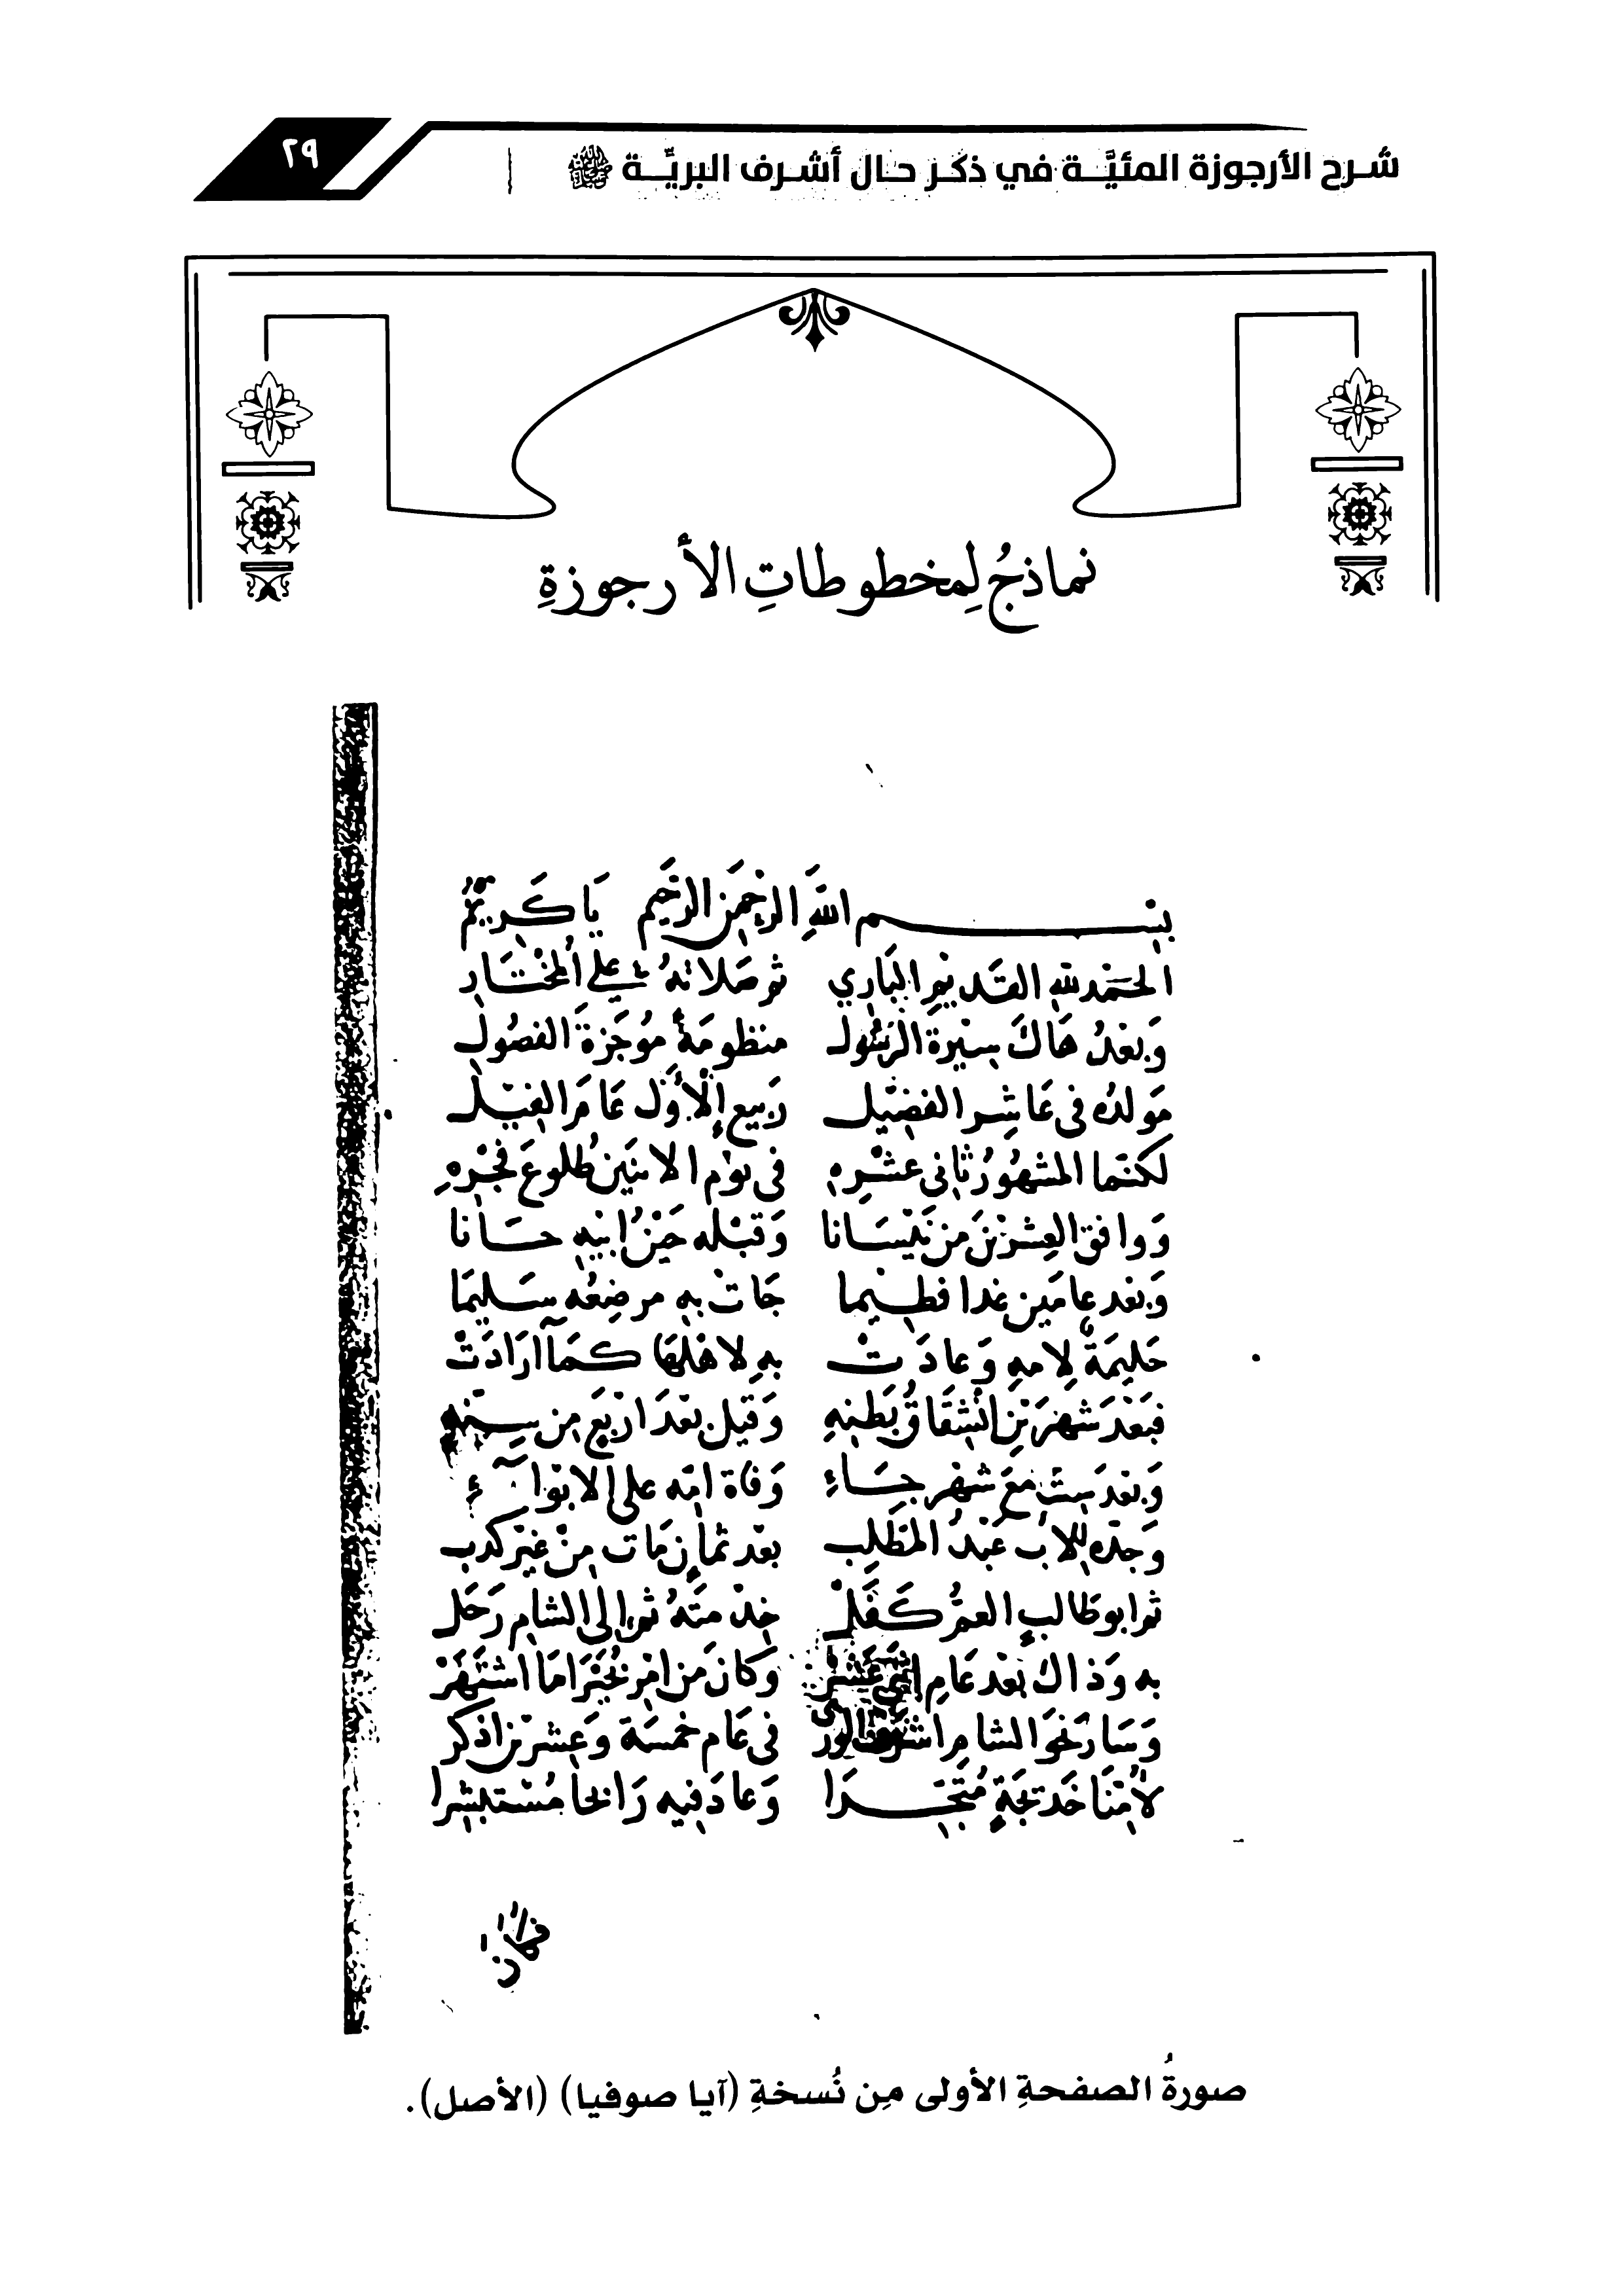 شرح الأرجوزة المئيَّة في ذكر حال أشرف البريَّة ﷺ | ٢٩
نماذجُ لِمخطوطاتِ الأرجوزةِ
بِسْم اللَّهِ الرحمَن الرَّحِيم يَا كَريمُ
الحَمْد للهِ القَدِيْرِ البَارِي ثم صَلَاتهُ عَلى المُخْتَارِ
وَبَعْدُ هَاكَ سِيْرَةَ الرَّسُول منظومَةً مُوْجَزَةَ الفصُول
مَولدُه في عَاشِر الفضِيْل رَبِيع الأوَّل عَامَ الفِيْل
لكنّما المشهُورُ ثانِي عشْرِهِ في يَوْم الاثنَين طُلوعَ فَجْرهِ
وَوافق العِشْريْنَ مِن نَيْسَانا وَقبْله حَيْنُ ابِيْهِ حَانا
وَبَعْد عامَين غدا فطِيْما جَات بهِ مرضِعُه سَلِيمَا
حَليمَةٌ لِامهِ وَعادَتْ بهِ لاهْلِهَا كَمَا ارَادَتْ
فبَعْدَ شَهْرَيْنِ انْشِقَاقُ بَطْنِهِ وَقِيْل بَعْدَ ارْبَعٍ مِن سِنهِ
وَبَعْد سِتٍّ مَعَ شَهْرٍ جَاءِ وَفاة امّه على الابْوآءِ
وَجَدّه للابِ عَبْدُ المُطَّلِب بَعْد ثمانٍ مَات مِنْ غَيْر كَذِب
ثم ابو طَالبٍ العَمُّ كَفَلْ خِدْمتَهُ ثم الى الشام رَحَل
به وَذاك بَعْد عَامِ اثني عَشَرْ وَكانَ مِن امْر بَحِيْرَا مَا اشتَهَرْ
وَسَارَ نحوَ الشام اشرف الورى في عَام خمسَة وَعشرين اذكر
لأُمِّنَا خَدِيْجَةٍ مُتَّجِرَا وَعادَ فِيه رَابحًا مُسْتبْشِرا
فكان
صورةُ الصفحةِ الأولى مِن نُسخةِ (آيا صوفيا) (الأصل).